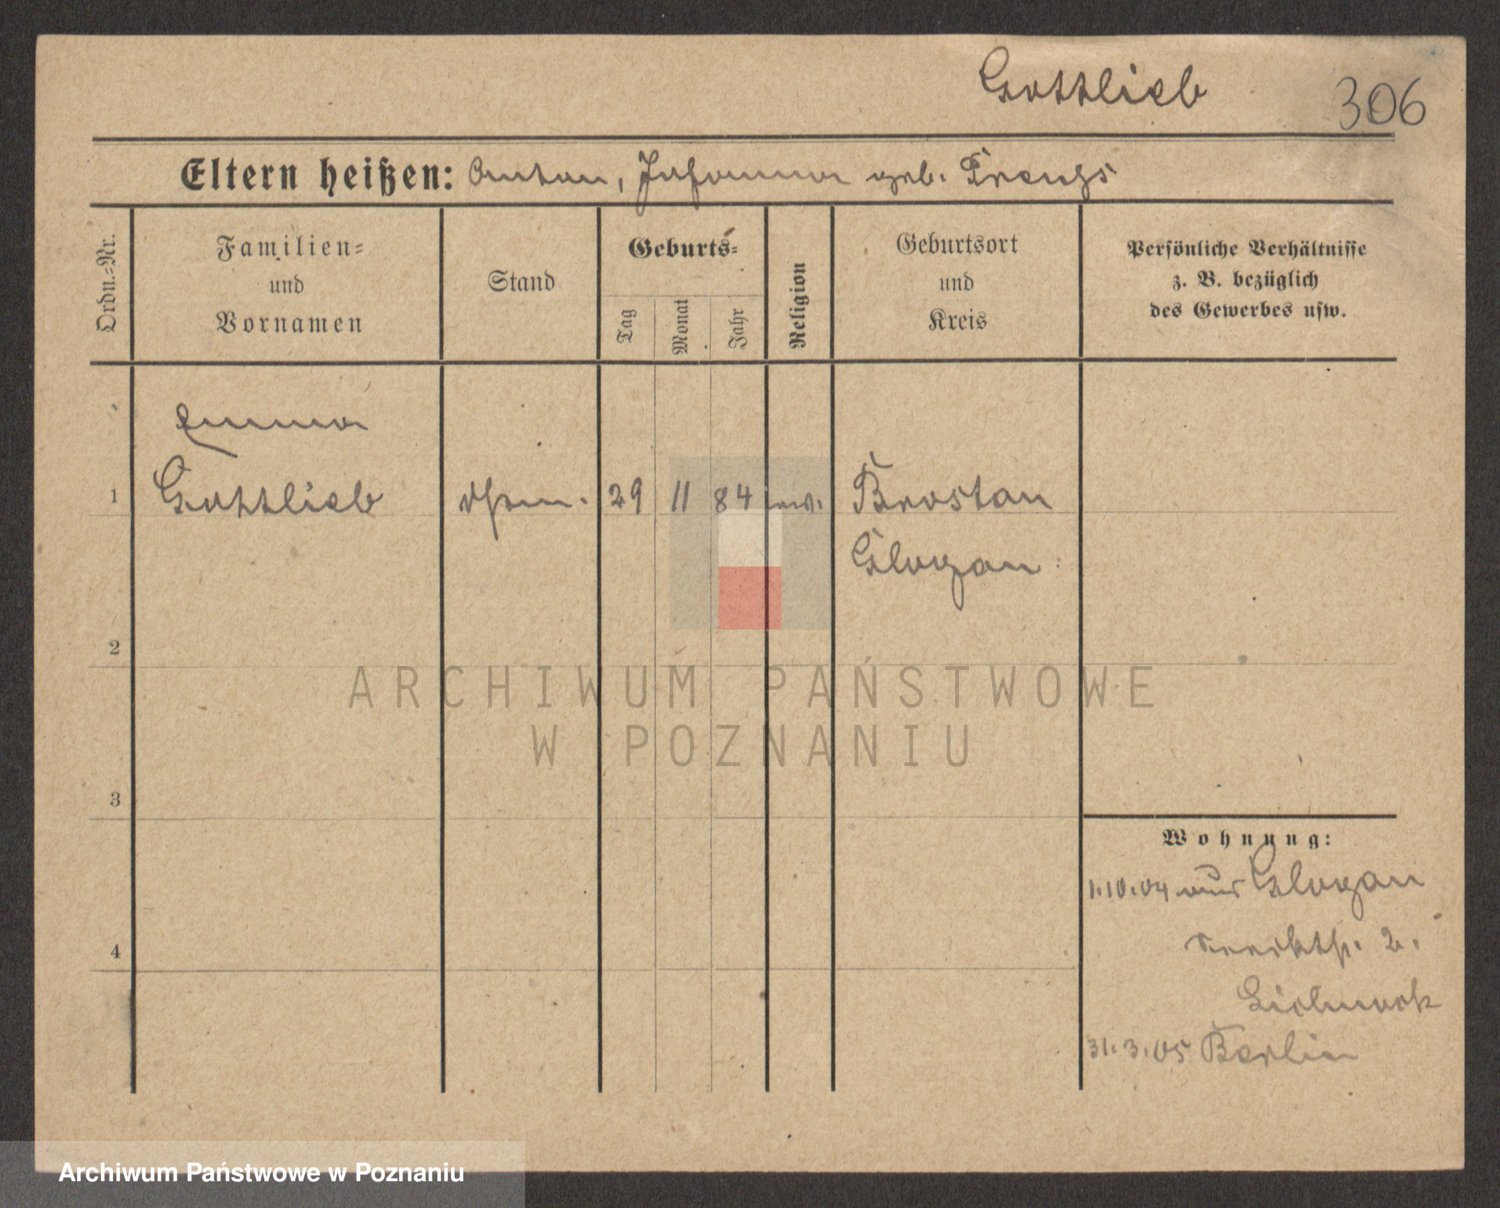 Gottlieb 306
Eltern heißen: Anton, Johanna geb.
Ordn.-Nr.
Familien-
und
Vornamen
Stand
Geburts-
Tag
Monat
Jahr
Religion
Geburtsort
und
Kreis
Persönliche Verhältnisse
z. B. bezüglich
des Gewerbes usw.
Emma
1 Gottlieb 29 11 84 ev. Brostau
Glogau
2
ARCHIWUM PAŃSTWOWE
W POZNANIU
3
Wohnung:
1.10.04 aus Glogau
2.
31.3.05 Berlin
4
Archiwum Państwowe w Poznaniu